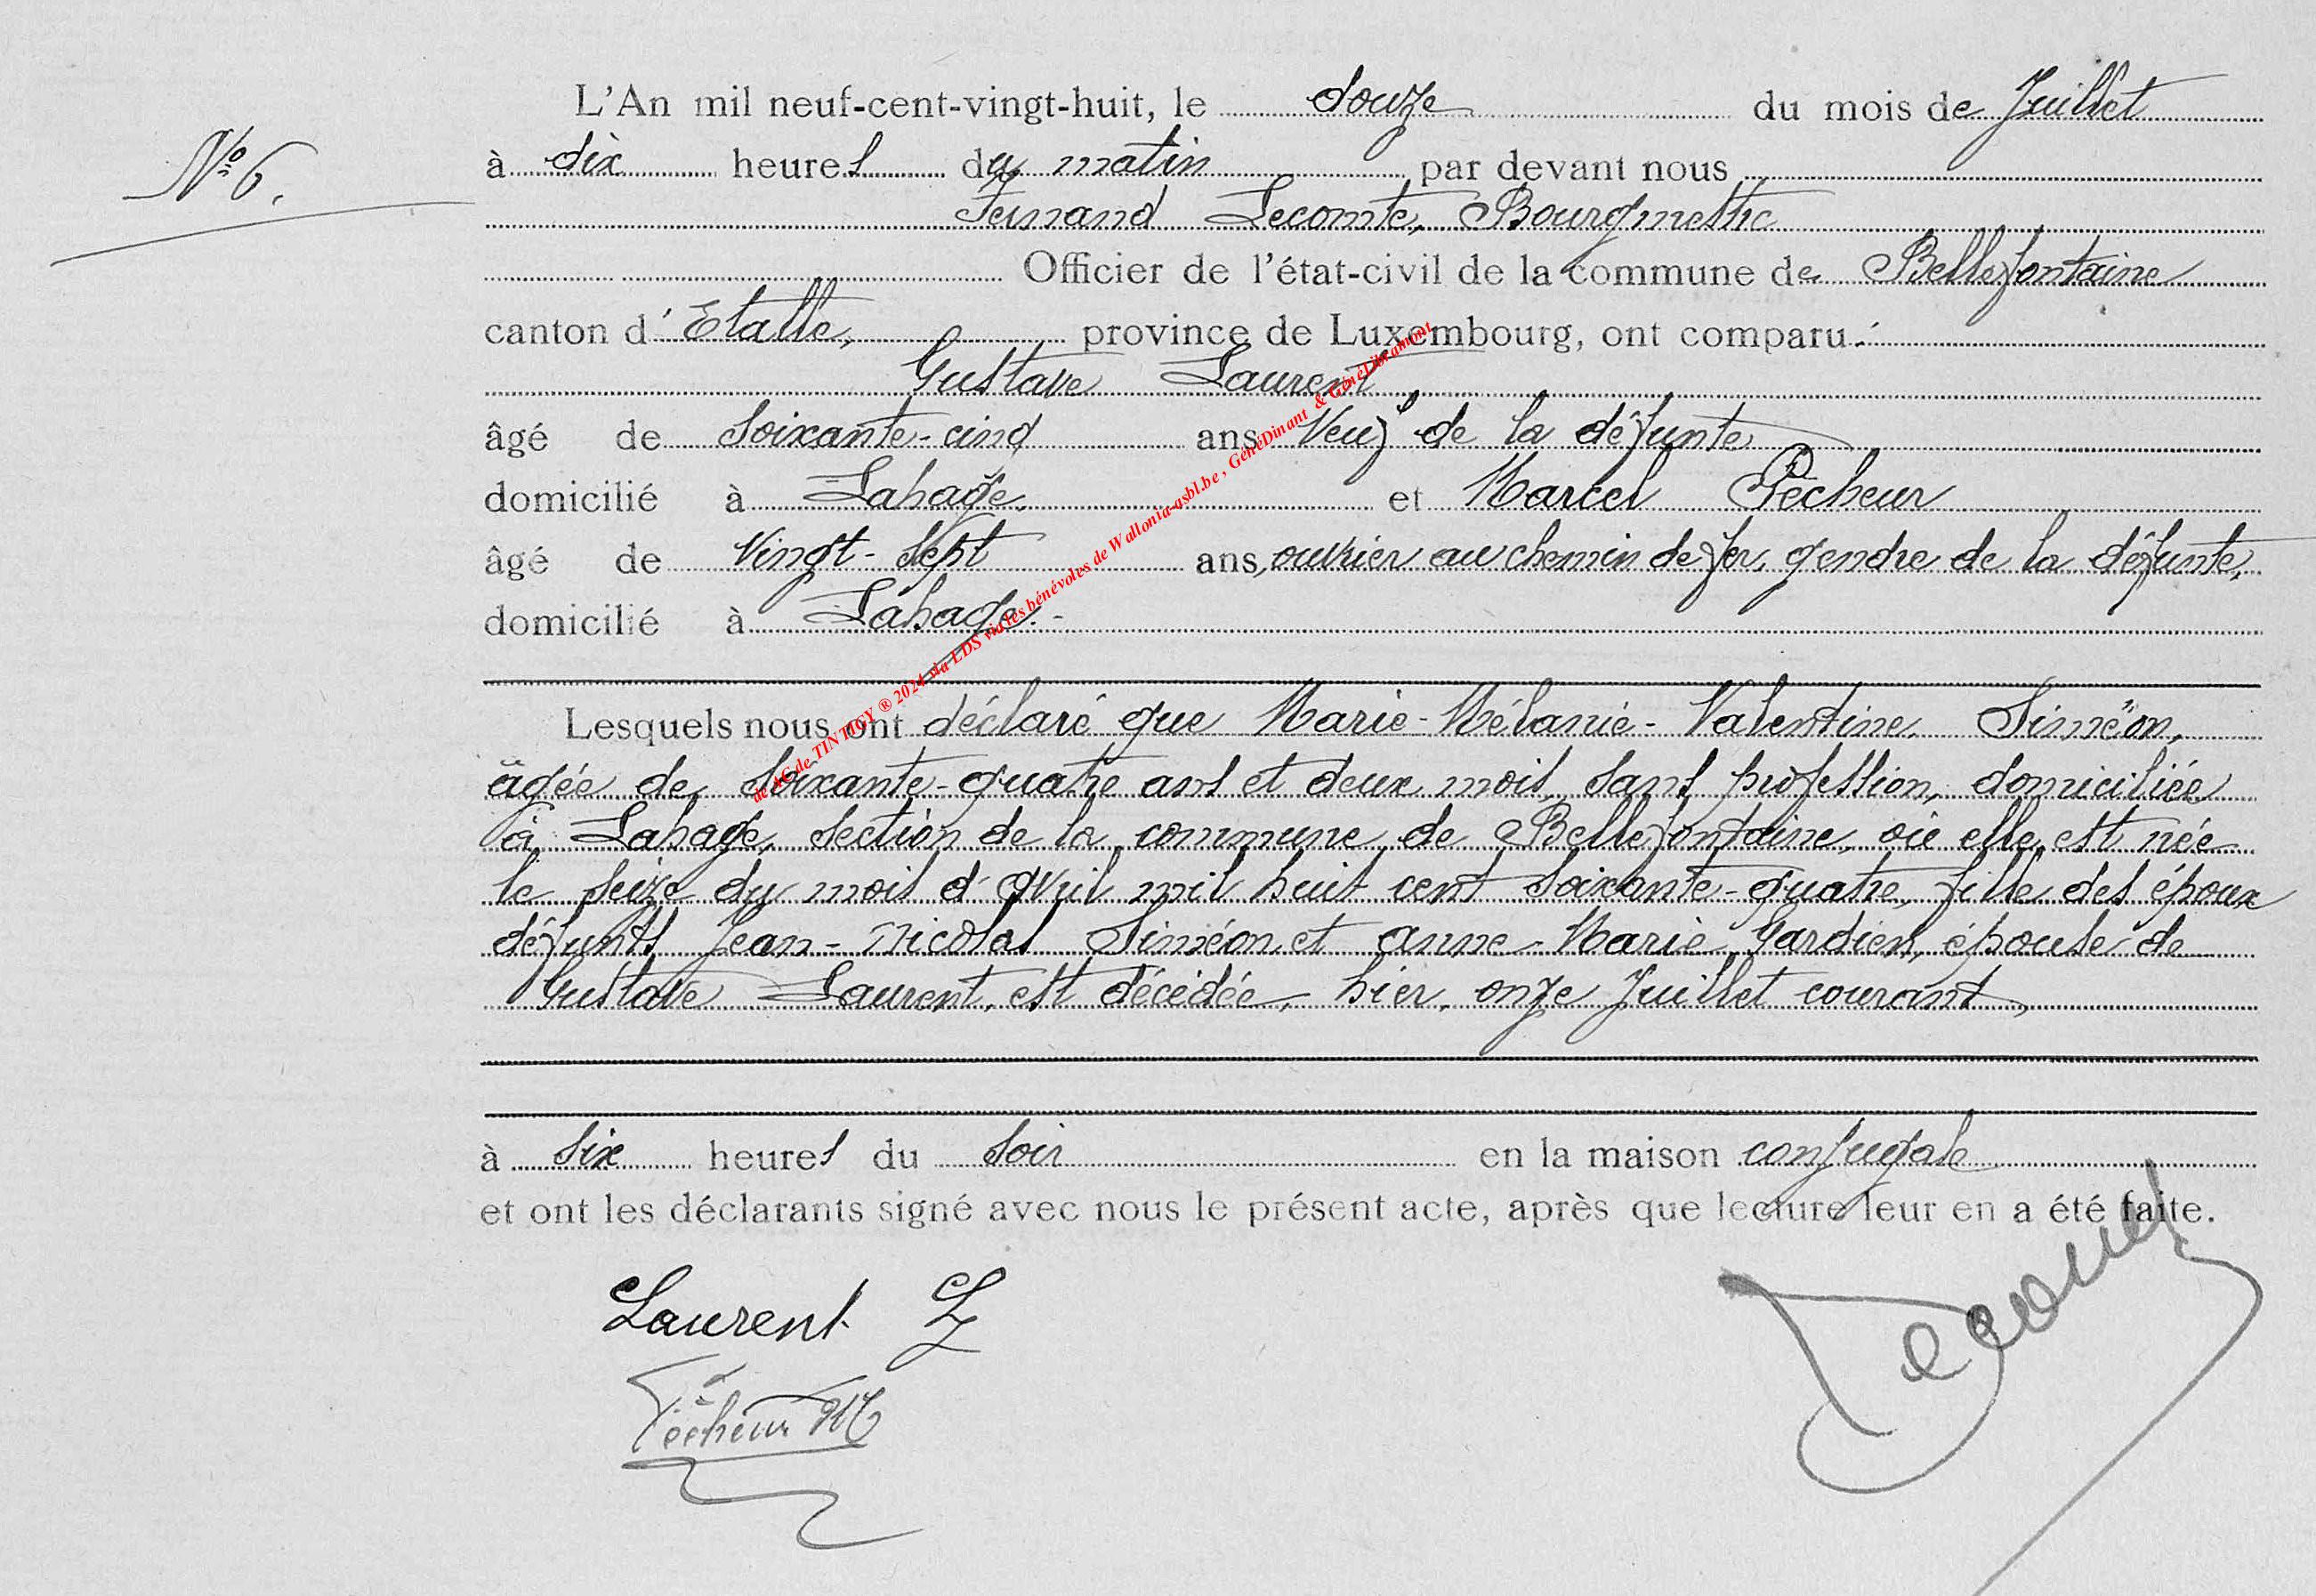 L'An mil neuf-cent-vingt-huit, le douze du mois de Juillet
N° 6.
à dix heures du matin par devant nous
Fernand Lecomte, Bourgmestre
Officier de l'état-civil de la commune de Bellefontaine
canton d'Etalle, province de Luxembourg, ont comparu :
Gustave Laurent,
âgé de soixante-cinq ans Veuf de la défunte
domicilié à Lahage. et Marcel Pêcheur
âgé de Vingt-sept ans, ouvrier au chemin de fer, gendre de la défunte,
domicilié à Lahage.-
Lesquels nous ont déclaré que Marie-Mélanie-Valentine Siméon,
âgée de soixante-quatre ans et deux mois, sans profession, domiciliée
à Lahage, section de la commune de Bellefontaine, où elle est née
le seize du mois d'avril mil huit cent soixante-quatre, fille des époux
défunts Jean-Nicolas Siméon et Anne-Marie Gardien, épouse de
Gustave Laurent, est décédée, hier, onze Juillet courant,
à six heures du soir en la maison conjugale
et ont les déclarants signé avec nous le présent acte, après que lecture leur en a été faite.
Laurent
Pêcheur M
de AC de TINTIGY ® 2024 via LDS via les bénévoles de Wallonia-asbl.be, GénéDinant & GénéLibramont